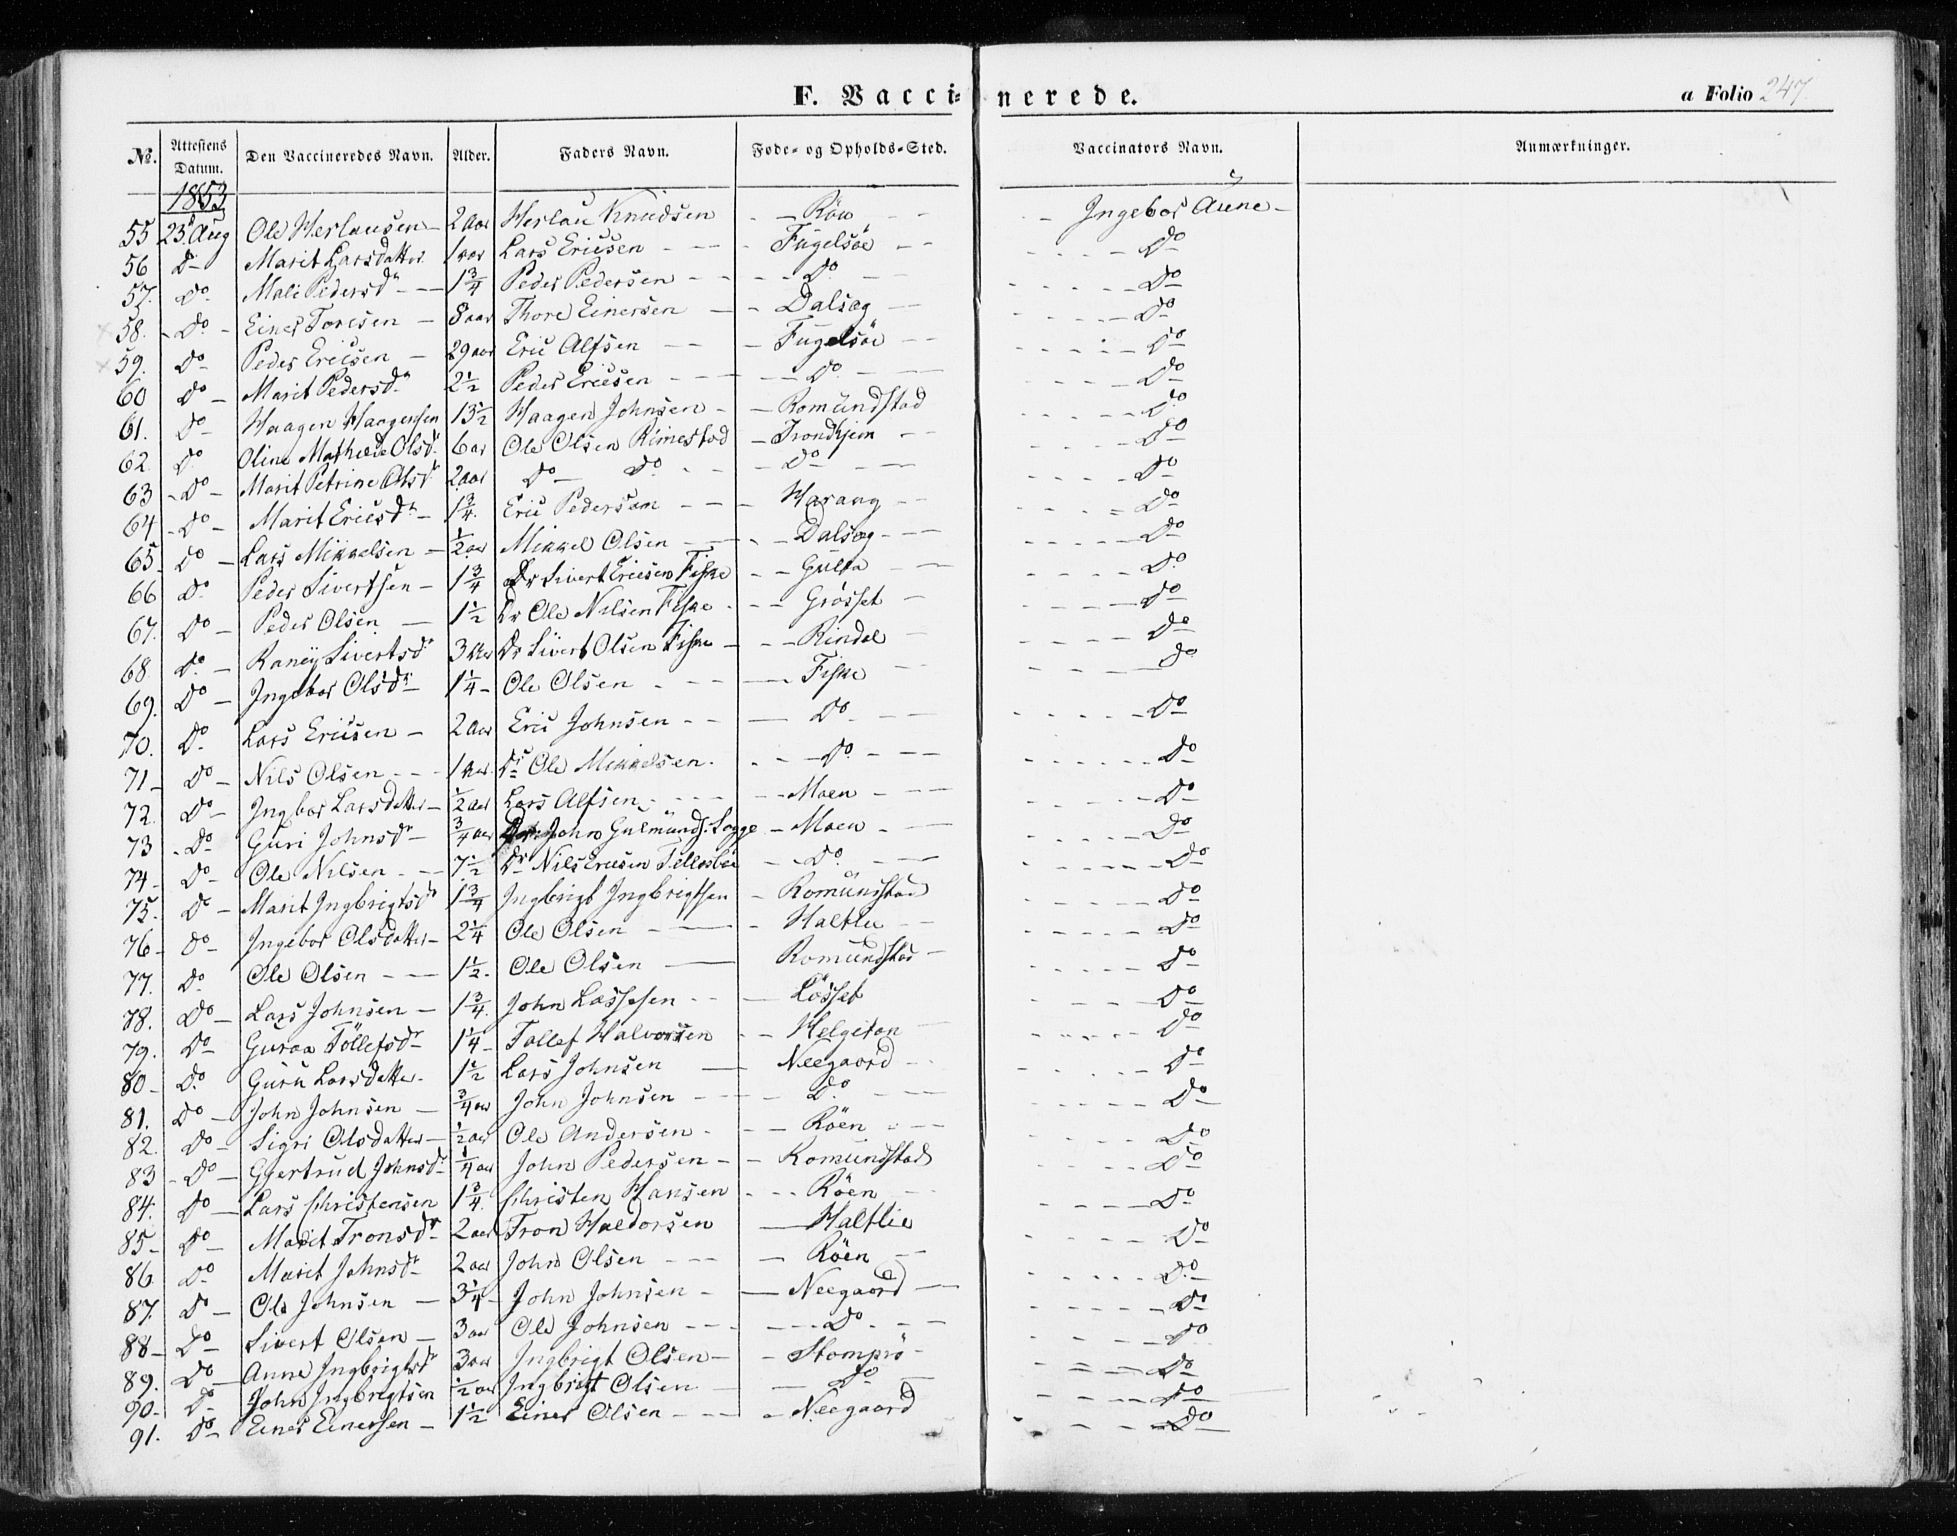 F. Vaccinerede.
a Folio 247.
No. Attestens Datum. Den Vaccineredes Navn. Alder. Faders Navn. Føde- og Opholds-Sted. Vaccinators Navn. Anmærkninger.
1853
55 23 Aug Ole Herlausen 2 aar Herlau Knudsen Röen Ingebor Aune
56 Do Marit Larsdatter 1 aar Lars Ericsen Fugelsöe Do
57. Do Mali Pedersdr 1 3/4 Peder Pedersen Do Do
58. Do Einer Toresen 8 aar Thore Einersen Dalsæg Do
59. Do Peder Ericsen 29 aar Eric Alfsen Fugelsöe Do
60 Do Marit Pedersdr 2 1/2 Peder Ericsen Do Do
61. Do Haagen Haagensen 13 1/2 Haagen Johnsen Romundstad Do
62. Do Oline Mathilde Olsdr 6 ar Ole Olsen Rimestad Trondhjem Do
63 Do Marit Petrine Olsdr 2 aar Do Do Do Do
64 Do Marit Ericsdr 1 3/4 Eric Pedersen Harang Do
65 Do Lars Mikkelsen 1/2 aar Mikkel Olsen Dalsæg Do
66 Do Peder Sivertsen 1 3/4 Dr Sivert Ericsen Fiske Gulla Do
67. Do Peder Olsen 1 1/2 Dr Ole Nilsen Fiske Grösset Do
68 Do Raney Sivertsdr 3 Aar Dr Sivert Olsen Fiske Rindal Do
69. Do Ingebor Olsdr 1 1/4 Ole Olsen Fiske Do
70. Do Lars Ericsen 2 Aar Eric Johnsen Do Do
71 Do Nils Olsen 1 Aar Dr Ole Mikkelsen Do Do
72. Do Ingbor Larsdatter 1/2 Aar Lars Alfsen Moen Do
73 Do Guri Johnsdr 3/4 aar John Gulmunds. Sogge Moen Do
74 Do Ole Nilsen 7 1/2 Dr Nils Ericsen Do Do
75. Do Marit Ingbrigtsdr 1 3/4 Ingbrigt Ingbrigtsen Romundstad Do
76 Do Ingebor Olsdatter 2 1/4 Ole Olsen Haltlie Do
77. Do Ole Olsen 1 1/2 Ole Olsen Romundstad Do
78. Do Lars Johnsen 1 3/4 John Larssen Lösset Do
79. Do Guroa Töllefsdr 1 1/4 Tollef Halvorsen Helgeton Do
80 Do Guru Larsdatter 1 1/2 Lars Johnsen Neegaard Do
81. Do John Johnsen 3/4 aar John Johnsen Do Do
82. Do Sigri Olsdatter 1/2 aar Ole Andersen Röen Do
83 Do Gjertrud Johnsdr 1/4 aar John Pedersen Romundstad Do
84. Do Lars Christensen 1 3/4 Christen Hansen Röen Do
85 Do Marit Tronsdr 2 aar Tron Haldorsen Haltlie Do
86 Do Marit Johnsdr 2 aar John Olsen Röen Do
87. Do Ole Johnsen 3 1/4 John Johnsen Neegaard Do
88 Do Sivert Olsen 3 aar Ole Johnsen Do Do
89. Do Anne Ingbrigtsdr 3 aar Ingbrigt Olsen Stomprö Do
90. Do John Ingbrigtsen 1/2 aar Ingbrigt Olsen Do Do
91. Do Einer Einersen 1 1/2 Einer Olsen Neegaard Do